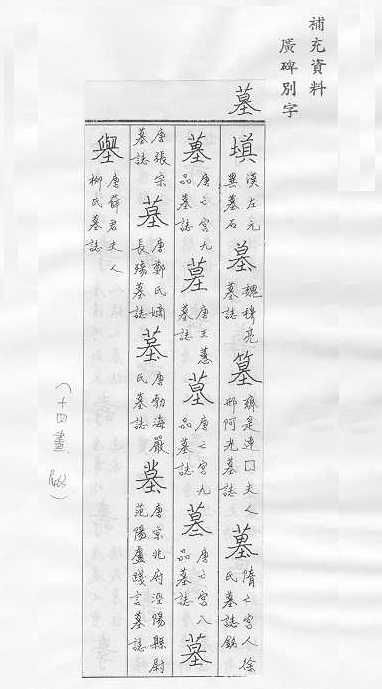 補充資料
廣碑別字
墓
塡 漢左元
異墓石
墓 魏穆亮
墓誌
墓 齊是連口夫人
邢阿光墓誌
墓 隋亡宮人徐
氏墓誌銘
墓 唐亡宮九
品墓誌
墓 唐王慕
墓誌
墓 唐亡宮九
品墓誌
墓 唐亡宮八
品墓誌
墓
唐張宗
墓誌
墓 唐鄭氏嫡
長殤墓誌
墓 唐勃海嚴
氏墓誌
墓 唐京兆府涇陽縣尉
范陽盧踐言墓誌
唐薛君夫人
柳氏墓誌
(十四畫)